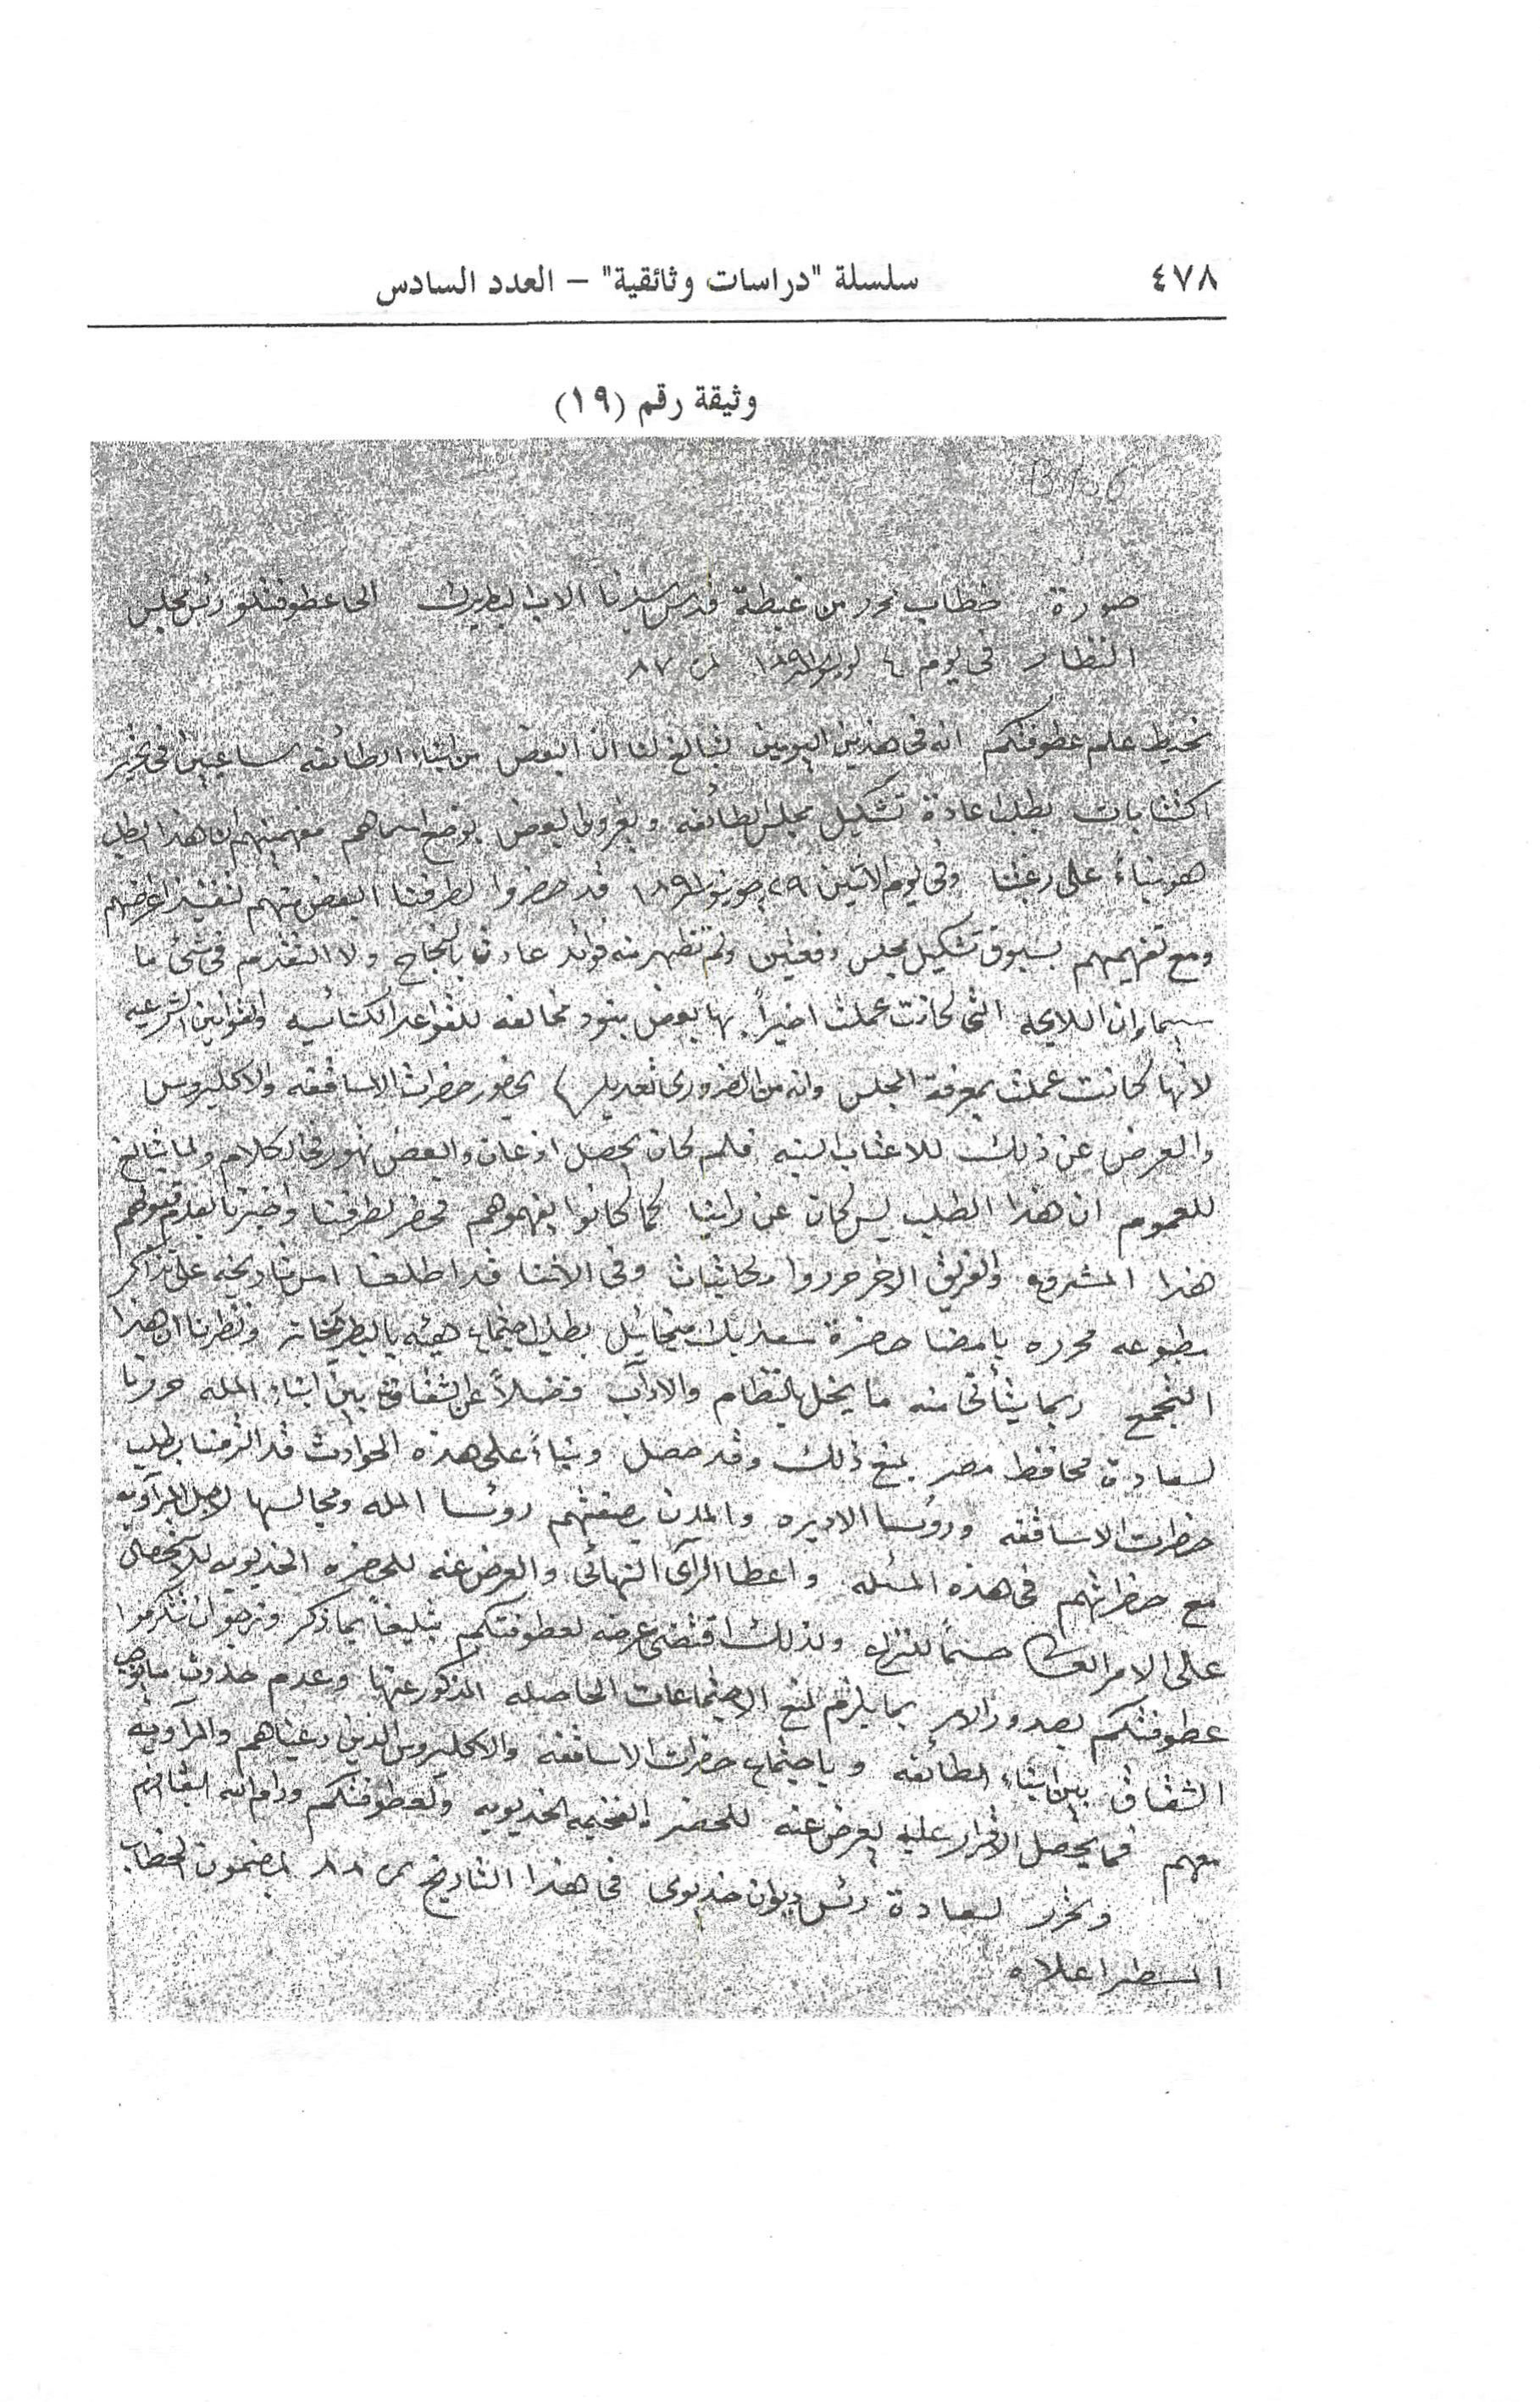 ٤٧٨
سلسلة "دراسات وثائقية" – العدد السادس
وثيقة رقم (١٩)
B/56
صورة خطاب تحرر من غبطة قدس سيدنا الاب البطريرك الى عطوفتلو رئس مجلس
النظار فى يوم ٤ لوليو ١٨٩١ نمرة ٨٧
نحيط علم عطوفتكم انه فى هذين اليومين تبالغ لنا ان البعض من ابناء الطائفه ساعيين فى تحرير
اكتتابات بطلب اعادة تشكيل مجلس الطائفه ويغروا البعض بوضع اسماهم مفهمينهم ان هذا الطلب
هو بناءً على رغبتنا وفى يوم الاثنين ٢٩ يونيو ١٨٩١ قد حضروا لطرفنا البعض منهم لتنفيذ اغراضهم
ومع تفهيمهم بسبوق تشكيل مجلس دفعتين ولم تظهر منه فوائد عادت بالنجاح ولا التقدم فى شئ ما
سيما وان اللايحه التى كانت عملت اخيراً بها بعض بنود مخالفه للقواعد الكنائسيه والقوانين الشرعيه
لانها كانت عملت بمعرفة المجلس وانه من الضرورى تعديلها بحضور حضرات الاساقفه والاكليروس
والعرض عن ذلك للاعتاب السنيه فلم كان يحصل اذعان والبعض تهور فى الكلام ولما تبالغ
للعموم ان هذا الطلب ليس كان عن راينا كما كانوا يفهموهم فحضر لطرفنا واخبرنا بعدم قبولهم
هذا المشروع والفريق الاخر حرروا مكاتبات وفى الاثنا قد اطلعنا امس تاريخه على تذاكر
مطبوعه محرره بامضا حضرة سعد بك ميخائيل بطلب اجتماع هيئه بالبطركخانه ونظرنا ان هذا
التجمع ربما يتأتى منه ما يخل بالنظام والاداب فضلاً عن الشقاق بين ابناء المله حررنا
لسعادة محافظ مصر بمنع ذلك وقد حصل وبناءً على هذه الحوادث قد الزمنا بطلب
حضرات الاساقفه وروسا الاديره والمدن بصفتهم روسا المله ومجالسها لاجل المداوله
مع حضراتهم فى هذه المسئله واعطا الرأى النهائى والعرض عنه للحضره الخديويه للاستحصال
على الامر العالى حسماً للنزاع ولذلك اقتضى عرضه لعطوفتكم تبليغاً بما ذكر ونرجو ان تتكرموا
عطوفتكم بصدور الامر بما يلزم لمنع الاجتماعات الحاصله المذكور عنها وعدم حدوث ما يوجب
الشقاق بين ابناء الطائفه وباجتماع حضرات الاساقفه والاكليروس الذين دعيناهم والمداوله
معهم فما يحصل الاقرار عليه يعرض عنه للحضره الفخيمه الخديويه ولعطوفتكم ودام الله بقاكم
وتحرر لسعادة رئس ديوان خديوى فى هذا التاريخ نمرة ٨٨ بمضمون الخطاب
المسطر اعلاه